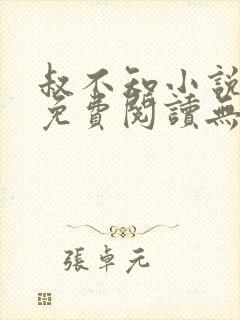 叔不知小說
免費閱讀無
張卓元